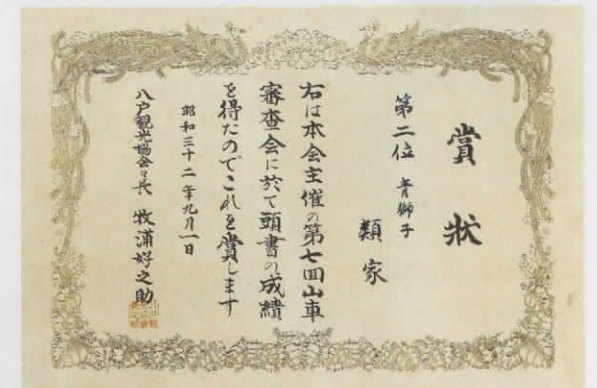 賞状
第二位 青獅子
類家
右は本会主催の第七回山車
審査会に於て頭書の成績
を得たのでこれを賞します
昭和三十二年九月一日
八戸観光協会々長 牧浦好之助